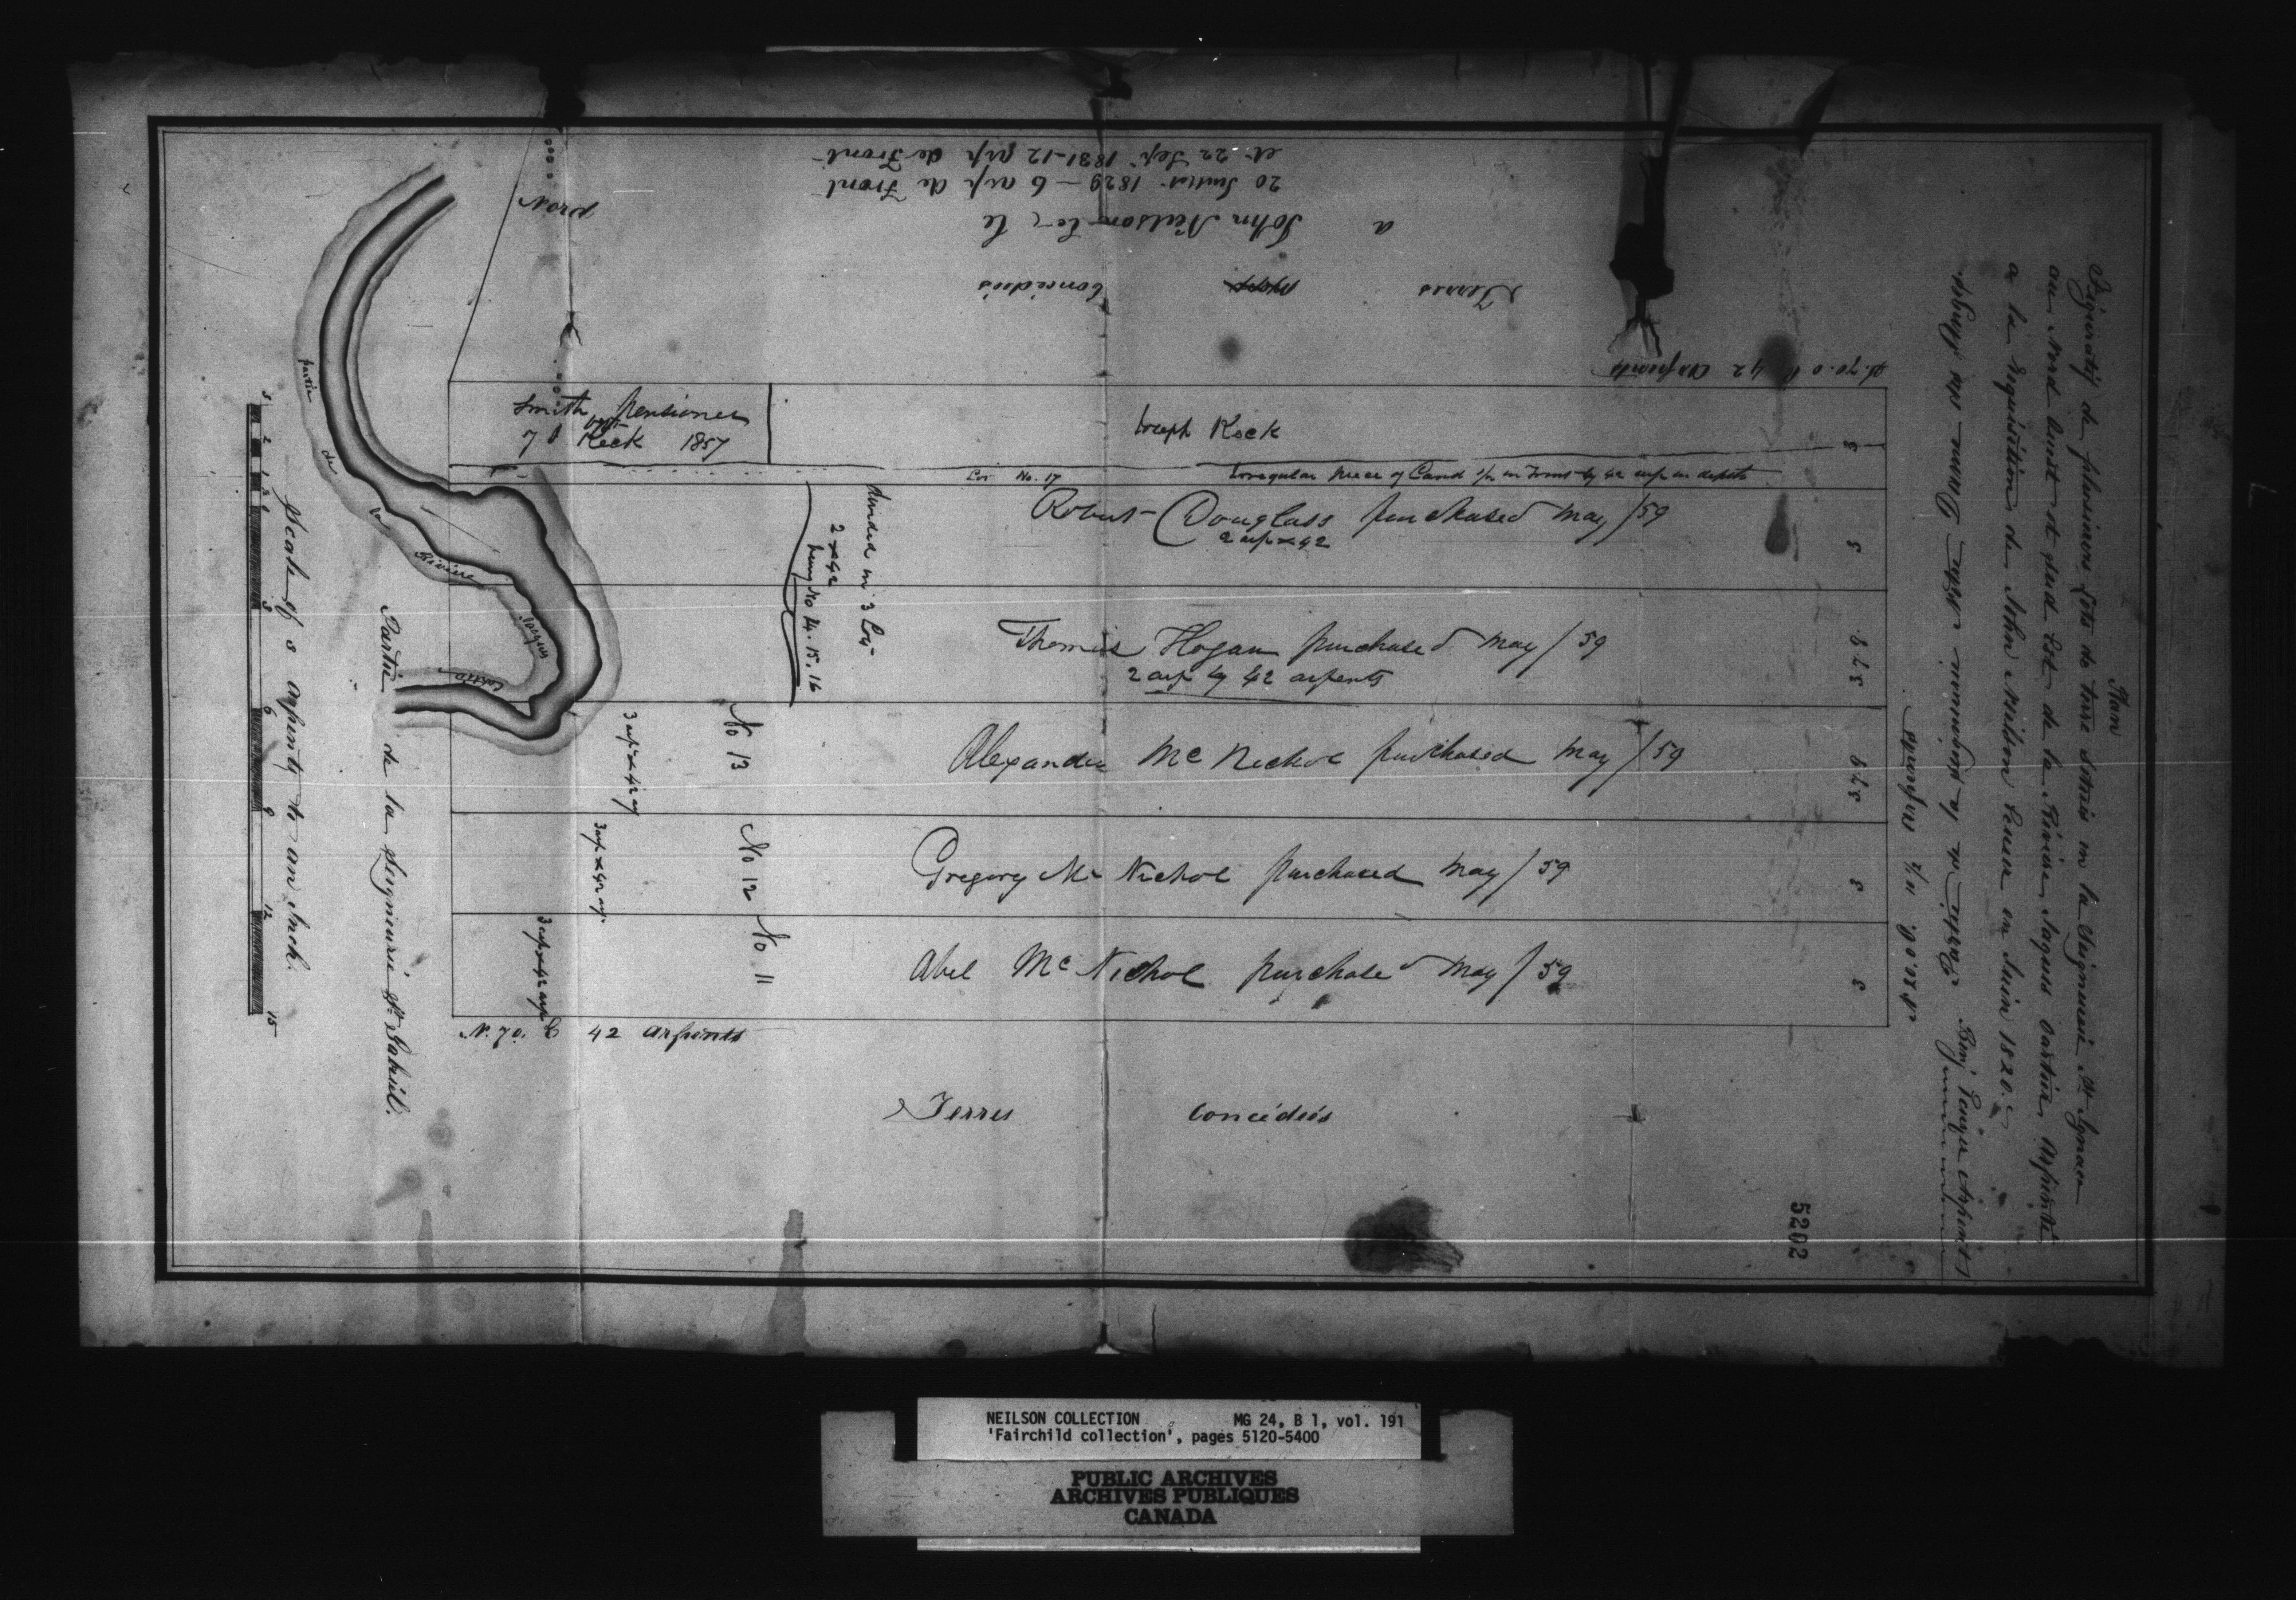 Plan
Figuratif de plusieurs Lots de terre situés en la Seigneurie St Ignace
au Nord Ouest et Sud Est de la Rivière Jaques Cartier, Arpenté
a la Requisition de John Neilson Ecuier en Juin 1820.
Arpents
et 22 Sepr 1831 - 12 arp de Front
20 Juillet 1829 - 6 arp de Front
a John Neilson Ecr le
Terres Concédées
N. 70. O 42 Arpents
Smith Pensioner
Keck 1857
Joseph Keck
3
Lot No. 17 Irregular piece of Land in Front by 42 arp in depth
Robert Douglass purchased May /59
2 arp x 42
3
divided in 3 Lots
2 x 42
being No 14. 15. 16
Thomas Hogan purchased May /59
2 arp by 42 arpents
No 13
3 arp x 42
Alexander Mc Nichol purchased May /59
No 12
3 arp x 42 arp
Gregory Mc Nichol purchased May /59
3
No 11
3 arp x 42 arp
Abel Mc Nichol purchased May /59
3
42 Arpents
Terres Concédées
partie de la Rivière Jaques Cartier
Partie de la Seigneurie St Gabriel.
Scale of 3 arpents to an Inch.
3 2 1 3 6 9 12 15
5202
NEILSON COLLECTION MG 24, B 1, vol. 191
'Fairchild collection', pages 5120-5400
PUBLIC ARCHIVES
ARCHIVES PUBLIQUES
CANADA